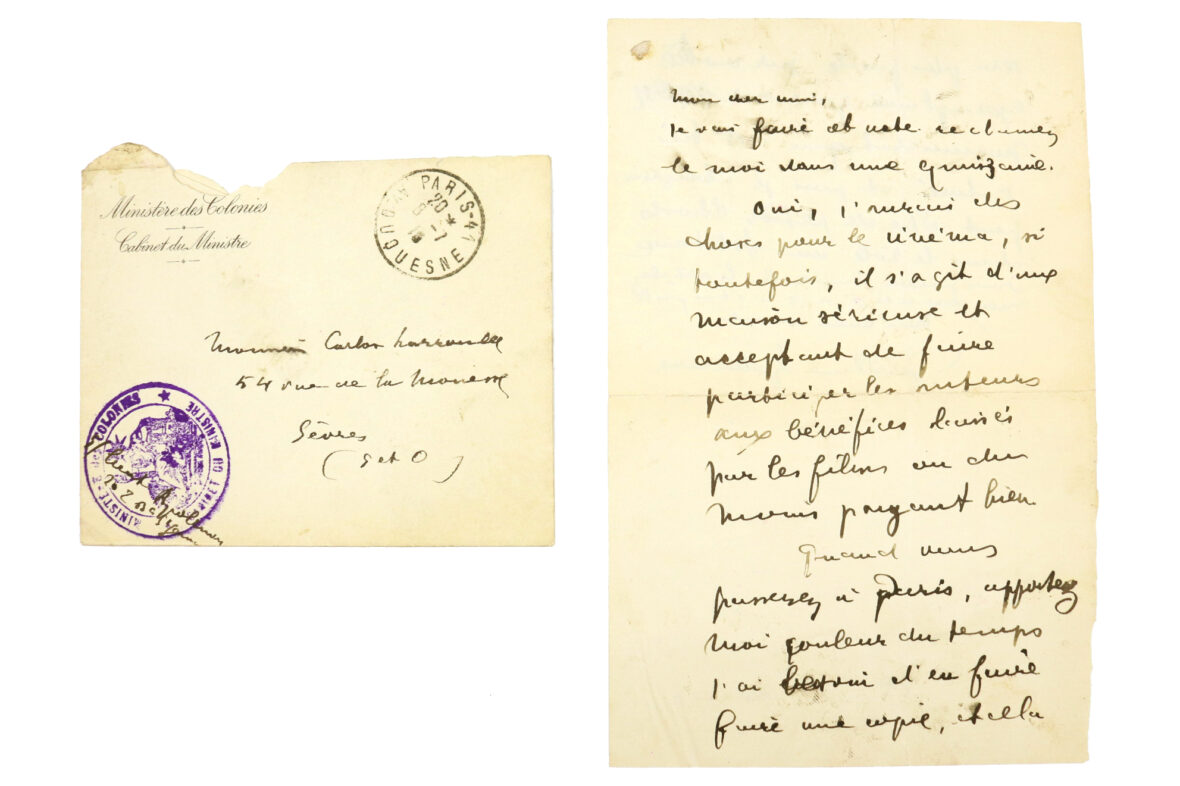 Ministère des Colonies
Cabinet du Ministre
PARIS-41
AV. DUQUESNE
20
Monsieur Carlos Larronde
54 rue de la Monesse
Sèvres
(S et O)
MINISTÈRE des COLONIES
CABINET DU MINISTRE
Mon cher ami,
je vais faire et note reclamez
le moi dans une quinzaine.
Oui, j'aurai des
choses pour le cinéma, si
toutefois, il s'agit d'une
maison sérieuse et
acceptant de faire
participer les auteurs
aux bénéfices laissés
par les films ou du
moins payant bien
Quand vous
passerez à Paris, apportez
moi Couleur du temps
j'ai besoin d'en faire
faire une copie, et cela